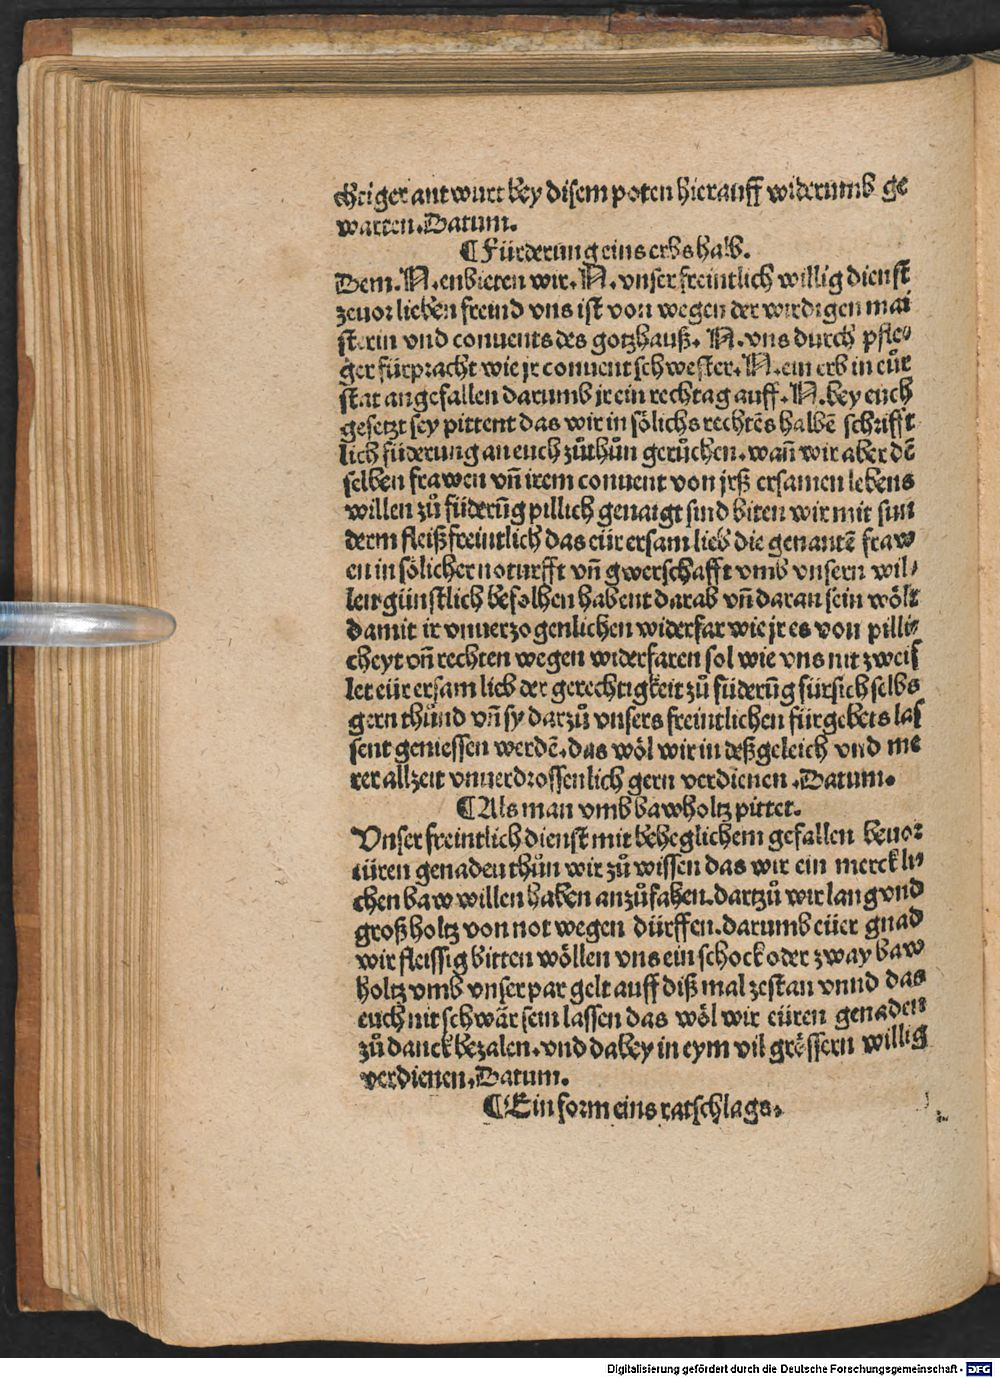 chtiger antwurt bey disem poten hierauff widerumb ge
warten. Datum.
¶ Fürderung eins erbs halb.
Dem. N. enbieten wir. N. vnser freintlich willig dienst
zeuor lieben freind vns ist von wegen der wirdigen mai
sterin vnd conuents des gotzhauß. N. vns durch pfle⸗
ger fürpracht wie jr conuent schwester. N. ein erb in eür
stat angefallen darumb jr ein rechtag auff. N. bey euch
gesetzt sey pittent das wir in sölichs rechtēs halbē schrifft
lich füderung an euch zůthůn gerůchen. wañ wir aber dē
selben frawen vñ irem conuent von jrß ersamen lebens
willen zů füderūg pillich genaigt sind biten wir mit sun
derm fleiß freintlich das eür ersam lieb die genantē fraw
en in sölicher noturfft vñ gwerschafft vmb vnsern wil⸗
len günstlich befolhen habent darab vñ daran sein wölt
damit ir vnuerzogenlichen widerfar wie jr es von pilli⸗
cheyt vñ rechten wegen widerfaren sol wie vns nit zweif
let eür ersam lieb der gerechtigkeit zů füderūg für sich selbs
gern thůnd vñ sy darzů vnsers freintlichen fürgebets las
sent geniessen werdē. das wöl wir in deßgeleich vnd me
rer allzeit vnuerdrossenlich gern verdienen. Datum.
¶ Als man vmb bawholtz pittet.
Vnser freintlich dienst mit beheglichem gefallen beuor
eüren genaden thůn wir zů wissen das wir ein mercklii⸗
chen baw willen haben anzůfahen. dartzů wir lang vnd
groß holtz von not wegen dürffen. darumb eüer gnad
wir fleissig bitten wöllen vns ein schock oder zway baw
holtz vmb vnser par gelt auff diß mal zestan vnnd das
euch nit schwär sein lassen das wöl wir eüren genaden
zů danck bezalen. vnd dabey in eym vil grössern willig
verdienen. Datum.
¶ Ein form eins ratschlags.
Digitalisierung gefördert durch die Deutsche Forschungsgemeinschaft - DFG